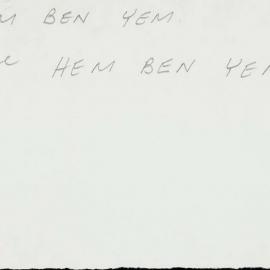 M BEN YEM.
HEM BEN YEM